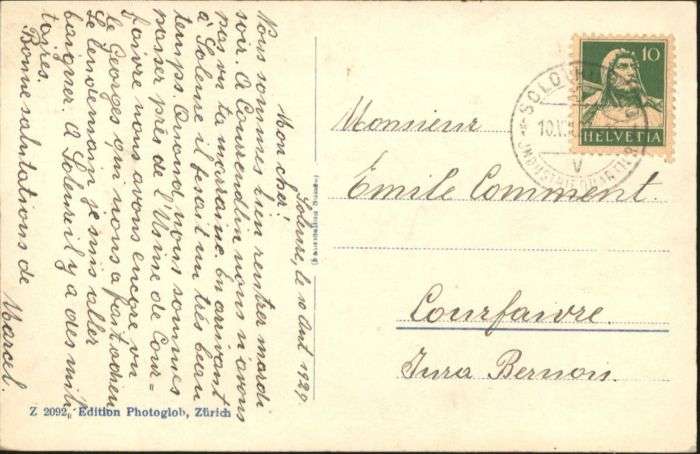 Soleure, le 10 Aout 1929.
Mon cher!
Nous sommes bien rentrer mardi
soir. A Courrendlin nous n'avons
pas vu ta marraine. En arrivant
à Soleure il fesait un très beau
temps. Quand nous sommes
passer près de l'Usine de Cour-
faivre nous avons encore vu
le Georges qui nous a fait adieu
Le lendemain je suis aller
baigner. A Soleure il y a des mili-
taires.
Bonne salutations de
Marcel.
Z 2092, Edition Photoglob, Zürich
10
HELVETIA
SOLO
10.
V
Monsieur
Emile Comment.
Courfaivre.
Jura Bernois.